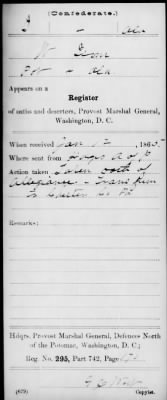 (Confederate.)
Ala
W
Pvt - Ala.
Appears on a
Register
of oaths and deserters, Provost Marshal General,
Washington, D. C.
When received Jan 12, 1865.
Where sent from Hdqrs A of P
Action taken Taken oath of
Allegiance - Trans furn
to
Remarks:
Hdqrs. Provost Marshal General, Defences North
of the Potomac, Washington, D. C.;
Reg. No. 295, Part 742, Page
(679) Copyist.